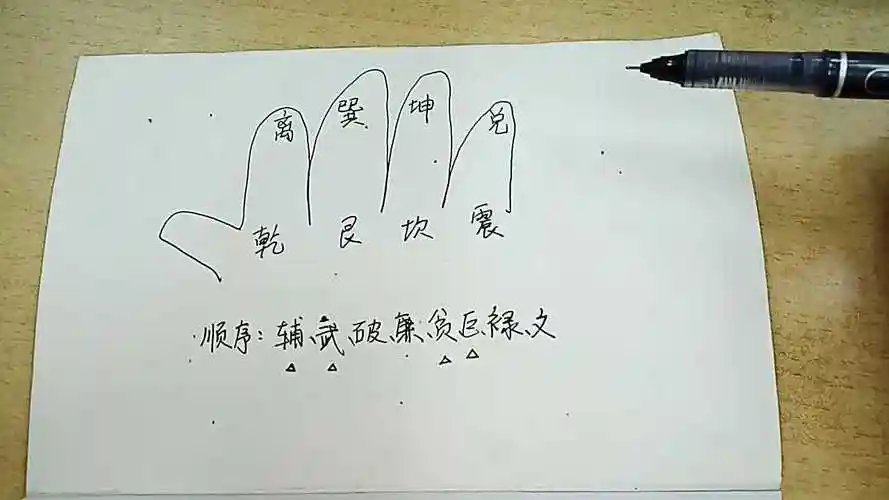 离 巽 坤 兑
乾 艮 坎 震
顺序：辅、武、破、廉、贪、巨、禄、文